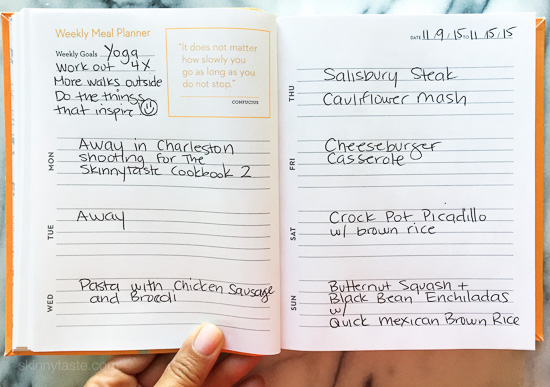 Weekly Meal Planner
Weekly Goals Yoga
Work out 4X
More walks outside
Do the things
that inspire
"It does not matter
how slowly you
go as long as you
do not stop."
CONFUCIUS
MON
Away in Charleston
shooting for The
Skinnytaste Cookbook 2
TUE
Away
WED
Pasta with Chicken Sausage
and Brocoli
DATE 11/9/15 TO 11/15/15
THU
Salisbury Steak
Cauliflower mash
FRI
Cheeseburger
Casserole
SAT
Crock Pot Picadillo
w/ brown rice
SUN
Butternut Squash +
Black Bean Enchiladas
w/
Quick Mexican Brown Rice
skinnytaste.com